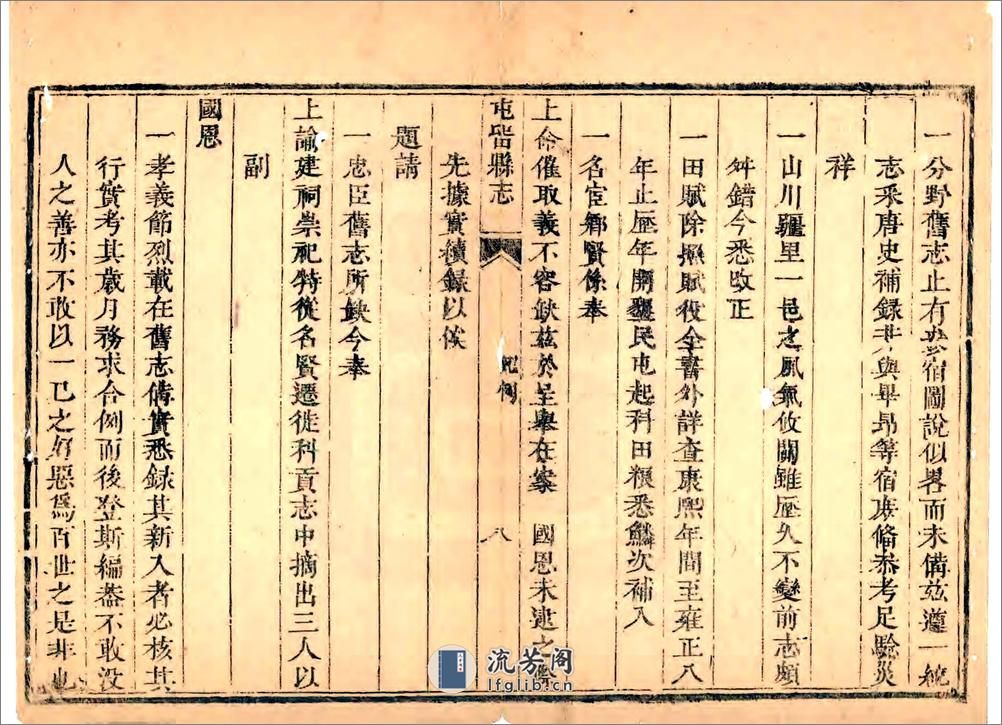 一分野舊志止有參宿圖說似畧而未備玆遵一統
志釆唐史補錄井與畢昴等宿庶備叅考足驗災
祥
一山川疆里一邑之風氣攸關雖歷久不變前志頗
舛錯今悉改正
一田賦除照賦役全書外詳查康熙年間至雍正八
年止歷年開墾民屯起科田糧悉鱗次補入
一名宦鄉賢條奉
上命催取義不容缺玆於呈舉在案 國恩未逮之
屯留縣志 凡例 八
先據實續錄以俟
題請
一忠臣舊志所缺今奉
上諭建祠崇祀特從名賢遷徙科貢志中摘出三人以
副
國恩
一孝義節烈載在舊志備實悉録其新入者必核其
行實考其歲月務求合例而後登斯編葢不敢沒
人之善亦不敢以一已之好惡爲百世之是非也
流芳阁
lfglib.cn